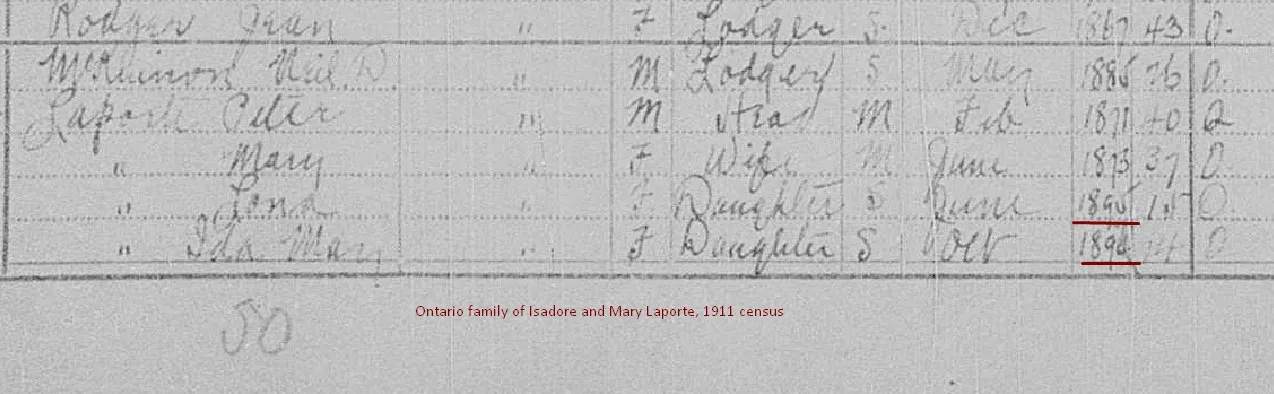 Rodger Jean " F Lodger S Dec 1867 43 O.
McKinnon Neil D. " M Lodger S May 1885 26 O.
Laporte Peter " M Head M Feb 1871 40 Q
" Mary " F Wife M June 1873 37 O.
" Lena " F Daughter S June 1895 15 O
" Ida Mary " F Daughter S Oct 1896 14 O
50
Ontario family of Isadore and Mary Laporte, 1911 census